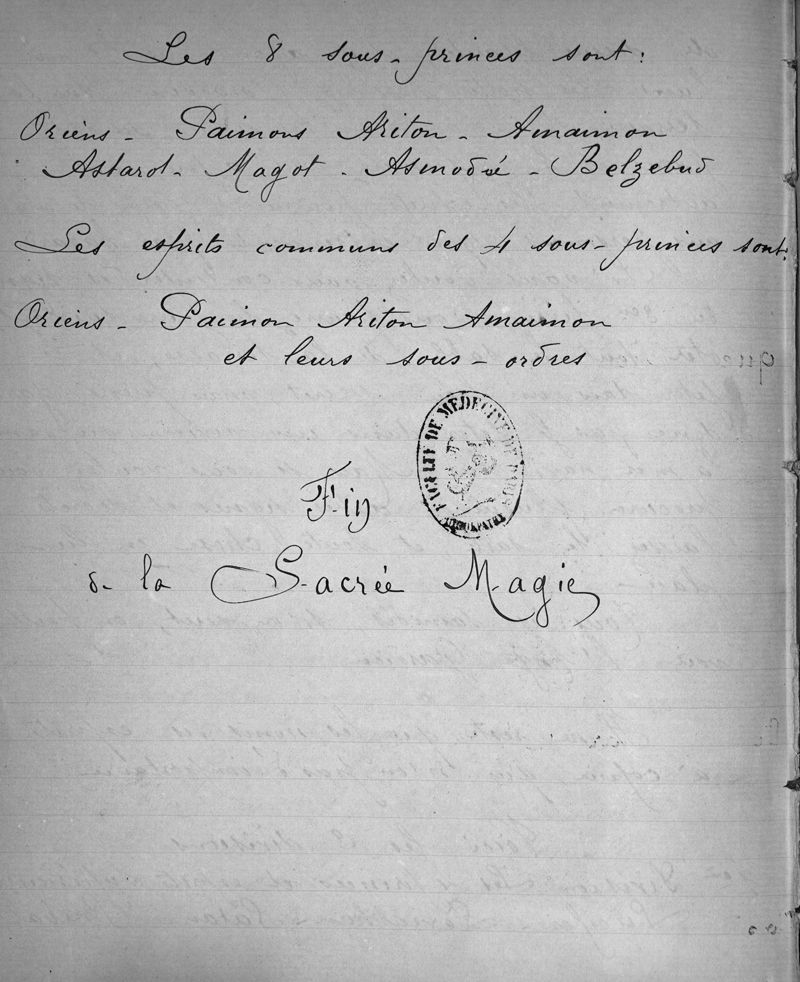 Les 8 sous-princes sont:
Oriens - Paimons Ariton - Amaimon
Astarot - Magot - Asmodée - Belzebud
Les esprits communs des 4 sous-princes sont:
Oriens - Paimon Ariton Amaimon
et leurs sous-ordres
FACULTE DE MEDECINE DE PARIS
Fin
de la Sacrée Magie